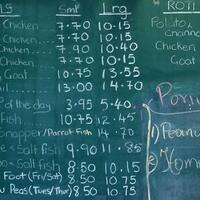 Sml Lrg ROTI
Chicken 7.70 10.15 Potato
Chicken 7.70 10.15 Channa
Chicken 7.90 10.40 Chicken
Chicken 7.70 10.15 Goat
Goat 10.75 13.55
13.00 14.70
of the day 3.95 5.40
Fish 10.75 12.45
Snapper/Parrot Fish 14.70 1) Peanu
Salt fish 9.90 11.85
Salt Fish 2) Hom
Foot (Fri/Sat) 8.50 10.15
Peas (Tues/Thur) 8.50 10.75